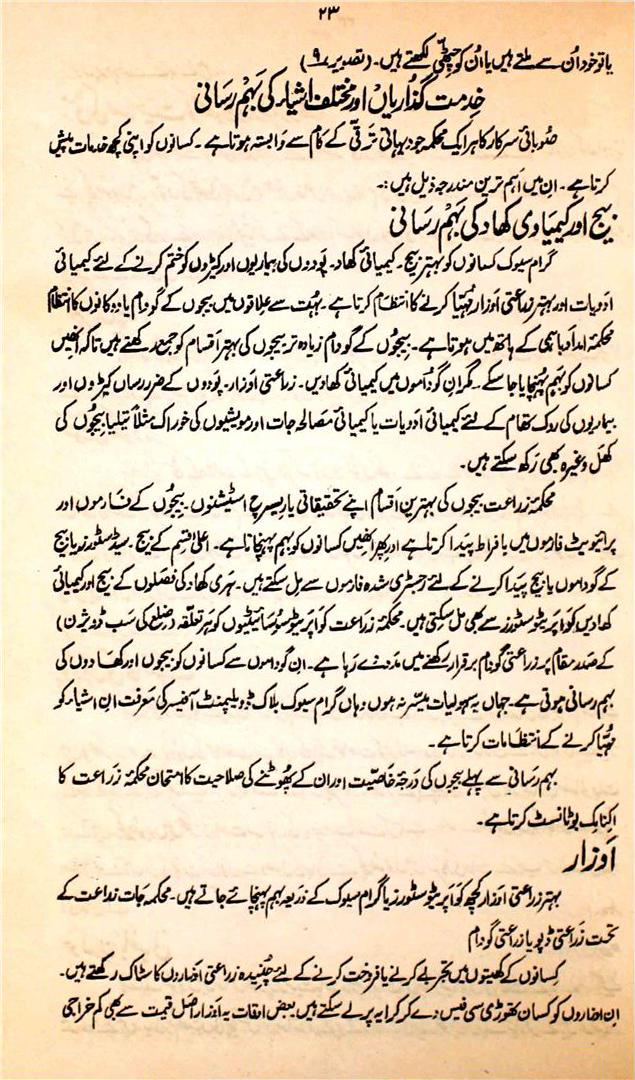 ۲۳
یا تو خود اُن سے ملتے ہیں یا اُن کو چٹھّی لکھتے ہیں۔ (تصویر ۹)
خدمت گذاریاں اور مختلف اشیاء کی بہم رسانی
صُوبائی سرکار کا ہر ایک محکمہ جو دیہاتی ترقی کے کام سے وابستہ ہوتا ہے۔ کسانوں کو اپنی کچھ خدمات پیش
کرتا ہے۔ اِن میں اہم ترین مندرجہ ذیل ہیں:۔
بیج اور کیمیاوی کھاد کی بہم رسانی
گرام سیوک کسانوں کو بہتر بیج۔ کیمیائی کھاد۔ پودوں کی بیماریوں اور کیڑوں کو ختم کرنے کے لئے کیمیائی
ادویات اور بہتر زراعتی اَوزار مُہیّا کرنے کا انتظام کرتا ہے۔ بہُت سے علاقوں میں بیجوں کے گودام یا دوکانوں کا انتظام
محکمۂ امداد باہمی کے ہاتھ میں ہوتا ہے۔ بیجوُں کے گودام زیادہ تر بیجوں کی بہتر اقسام کو جمع رکھتے ہیں تاکہ اُنھیں
کسانوں کو بہم پہُنچایا جا سکے۔ نگران گوداموں میں کیمیائی کھادیں۔ زراعتی اَوزار۔ پودوں کے ضرر رساں کیڑوں اور
بیماریوں کی روک تھام کے لئے کیمیائی اَدویات یا کیمیائی مصالحہ جات اور مویشیوں کی خوراک مثلاً تیلیا بیجوُں کی
کھل وغیرہ بھی رکھ سکتے ہیں۔
محکمۂ زراعت بیجوں کی بہترین اَقسام اپنے تحقیقاتی یا ریسرچ اسٹیشنوں۔ بیجوُں کے فارموں اور
پرائیویٹ فارموں میں با فراط پیدا کرتا ہے اور پھر انھیں کسانوں کو بہم پہنچاتا ہے۔ اعلیٰ قسم کے بیج۔ سیڈ سٹورز یا بیج
کے گوداموں یا بیج پیدا کرنے کے لئے رجسٹری شدہ فارموں سے مل سکتے ہیں۔ ہری کھاد کی فصلوں کے بیج اور کیمیائی
کھادیں کوآپریٹو سٹورز سے بھی مل سکتی ہیں۔ محکمۂ زراعت کوآپریٹو سُوسائیٹیوں کو ہر تعلقہ (ضلع کی سب ڈویژن)
کے صدر مقام پر زراعتی گودام برقرار رکھنے میں مدد دے رہا ہے۔ ان گوداموں سے کسانوں کو بیجوں اور کھادوں کی
بہم رسانی ہوتی ہے۔ جہاں یہ سہولیات میسّر نہ ہوں وہاں گرام سیوک بلاک ڈویلپمنٹ آفیسر کی معرفت ان اشیاء کو
مہیّا کرنے کے انتظامات کرتا ہے۔
بہم رسانی سے پہلے بیجوں کی درجہ خاصیت اور ان کے پھُوٹنے کی صلاحیت کا امتحان محکمۂ زراعت کا
اِکنامک بوٹانسٹ کرتا ہے۔
اَوزار
بہتر زراعتی اَوزار کچھ کوآپریٹو سٹورز یا گرام سیوک کے ذریعہ بہم پہنچائے جاتے ہیں۔ محکمہ جات زراعت کے
تحت زراعتی ڈپو یا زراعتی گودام
کِسانوں کے کھیتوں میں تجربے کرنے یا فروخت کرنے کے لئے چنیدہ زراعتی اَضاروں کا سٹاک رکھتے ہیں۔
اِن اضاروں کو کسان تھوڑی سی فیس دے کر کرایہ پر لے سکتے ہیں بعض اوقات یہ اَوزار اصل قیمت سے بھی کم خراجی